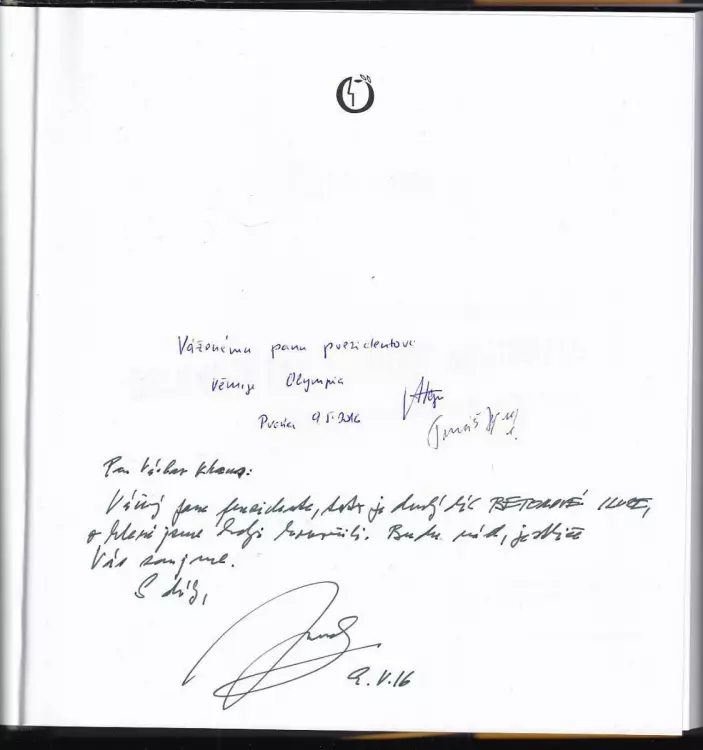 Váženému panu prezidentovi
věnuje Olympia
Praha 9.5.2016
Tomáš
Pan Václav Klaus:
Vážený pane prezidente, toto je druhý díl BETONOVÉ
o které jsme kdysi hovořili. Budu rád, jestliže
Vás zaujme.
S díky,
9.V.16